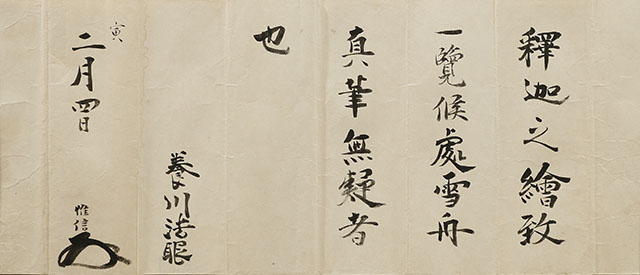 釋迦之繪致
一覽候處雪舟
真筆無疑者
也
養川法眼
寅
二月四日
惟信